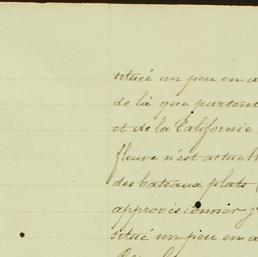 situé un peu en a
de là que partent
et de la Californie
fleuve n'est actuel
des bateaux plats
approvisionner j
situé un peu en a